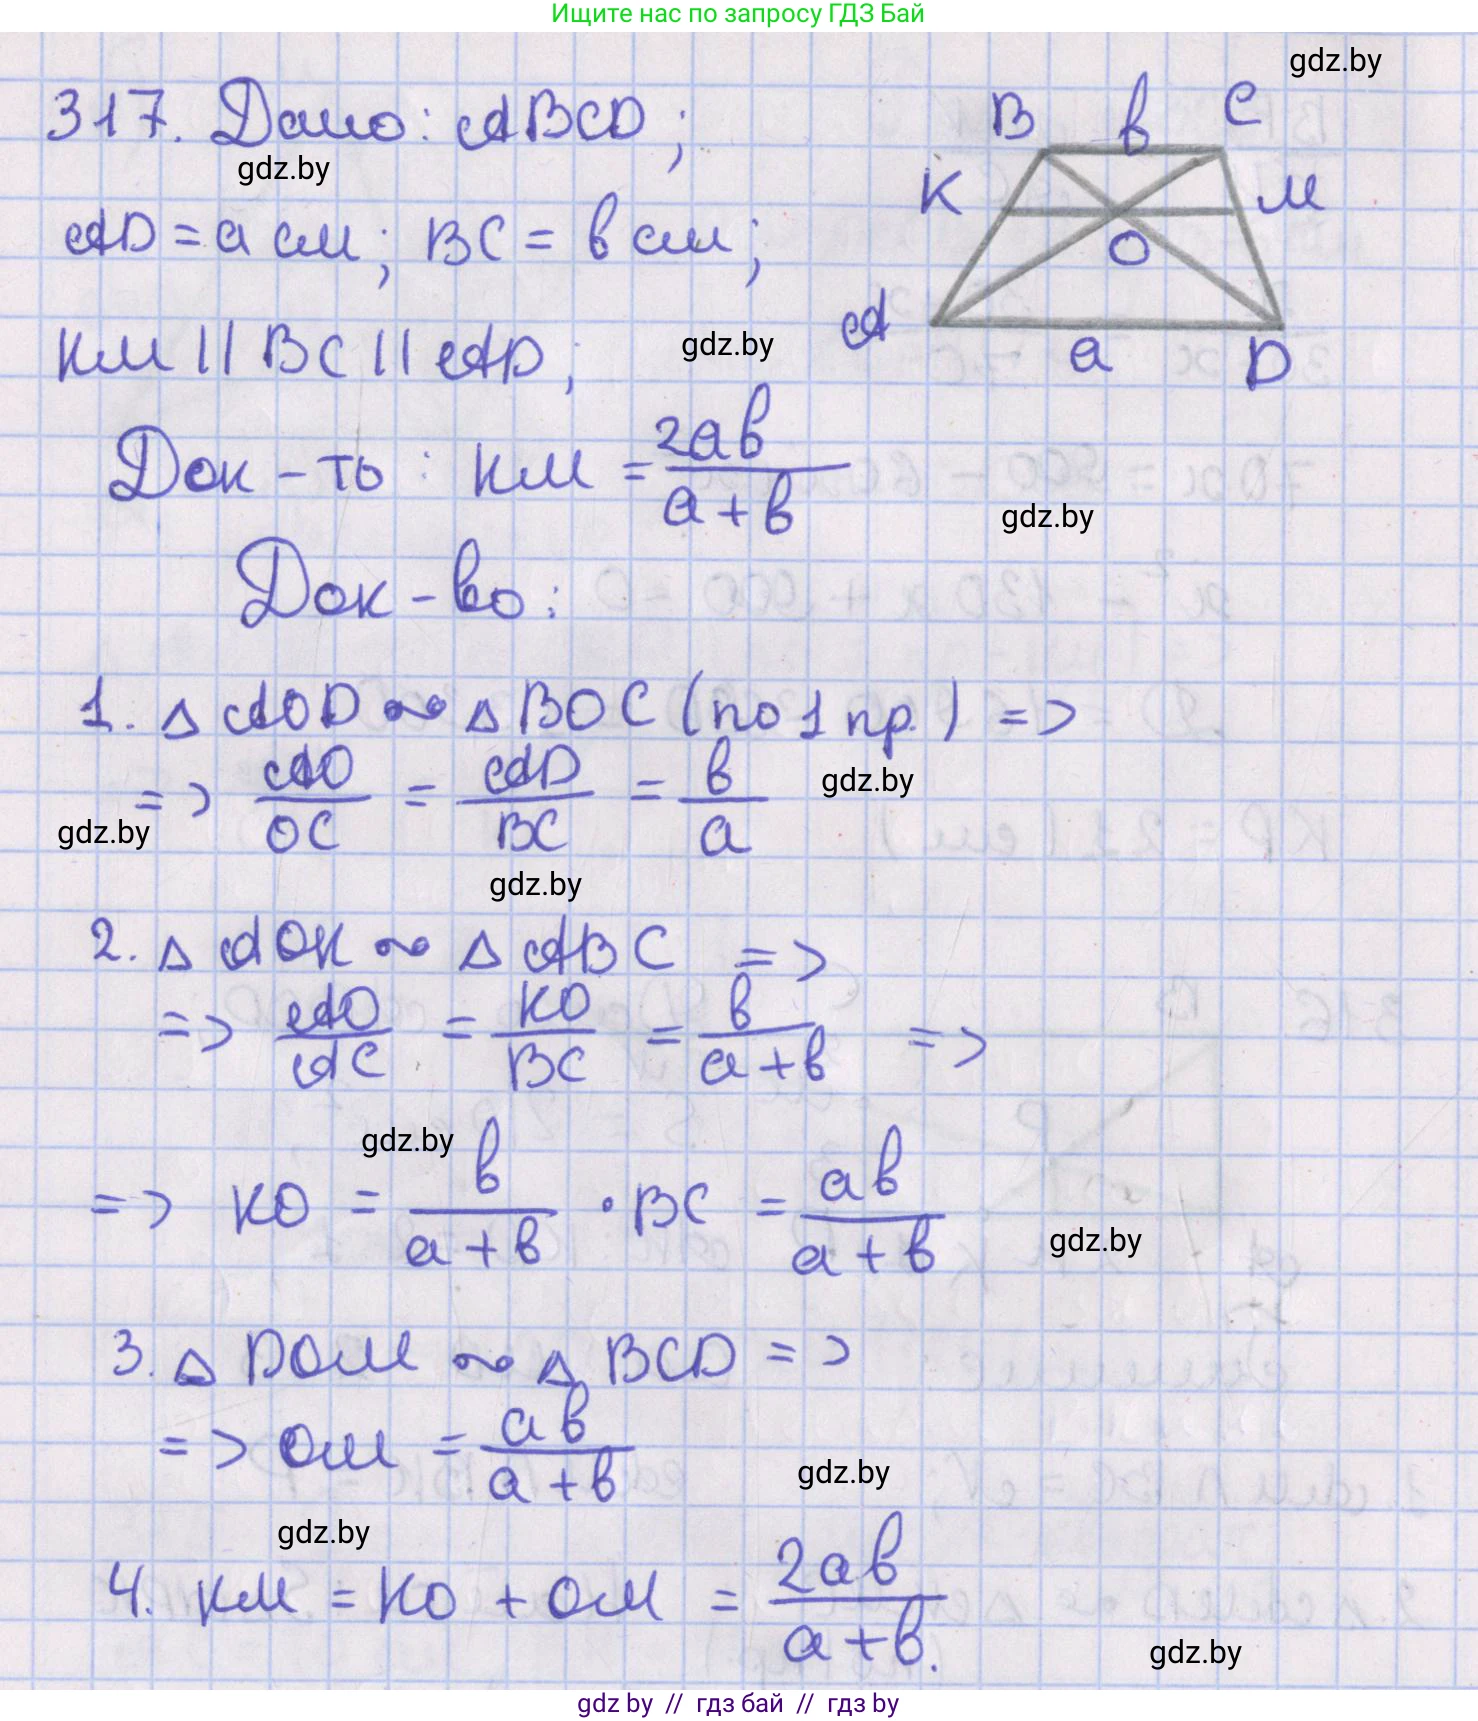 Ищите нас по запросу ГДЗ Бай
gdz.by
317. Дано: ABCD;
gdz.by
AD = a см; BC = в см;
КМ || BC || AD;
gdz.by
B в C
К М
O
A a D
Док-ть: КМ = 2ав / a+в
gdz.by
Док-во:
1. △ AOD ~ △ BOC (по 1 пр.) =>
=> AO/OC = AD/BC = в/a
gdz.by
gdz.by
gdz.by
2. △ AOK ~ △ ABC =>
=> AO/AC = KO/BC = в/a+в =>
gdz.by
=> KO = в/a+в · BC = aв/a+в
gdz.by
3. △ DOM ~ △ BCD =>
=> OM = aв/a+в
gdz.by
gdz.by
4. КМ = КО + ОМ = 2aв/a+в.
gdz.by
gdz by // гдз бай // гдз by